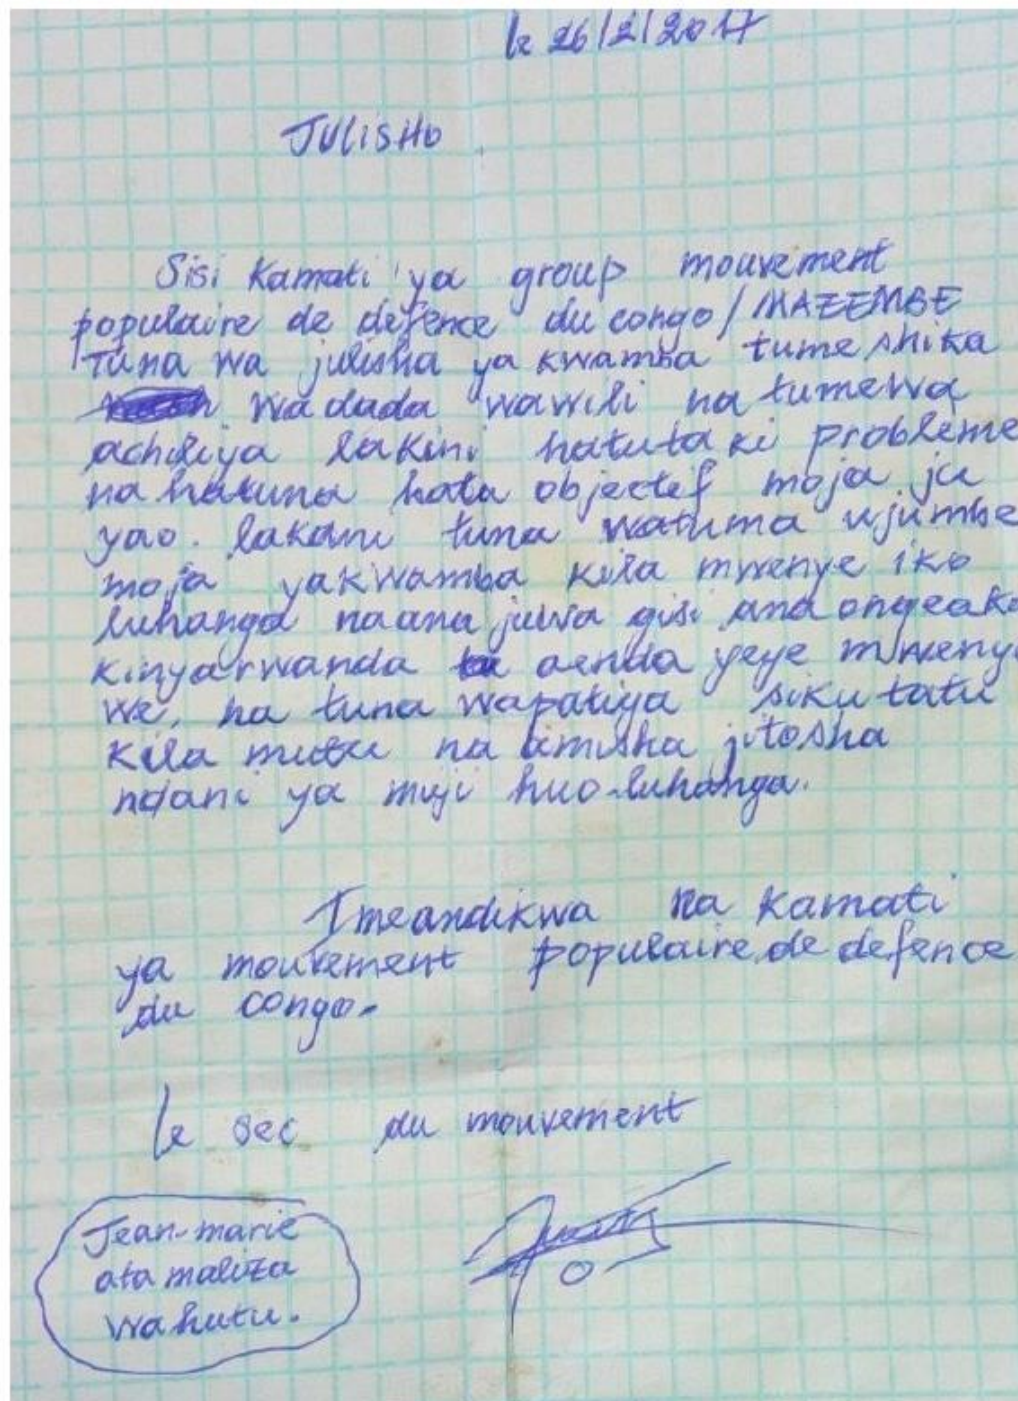 le 26/2/2017
JULISHO
Sisi Kamati ya group mouvement
populaire de défence du congo/MAZEMBE
Tuna wa julisha ya kwamba tumeshika
wadada wawili na tumewa
achiliya lakini hatutaki probleme
na hatuna hata objectef moja ju
yao. lakini tuna watuma ujumbe
moja yakwamba kila mwenye iko
luhanga naana juwa gisi ana ongeaka
kinyarwanda aenda yeye mwenye
we, na tuna wapatiya siku tatu
kila mutu na amisha jitosha
ndani ya muji huo luhanga.
Imeandikwa na Kamati
ya mouvement populaire de defence
du congo.
le sec du mouvement
Jean-marie
ata maliza
wahutu.